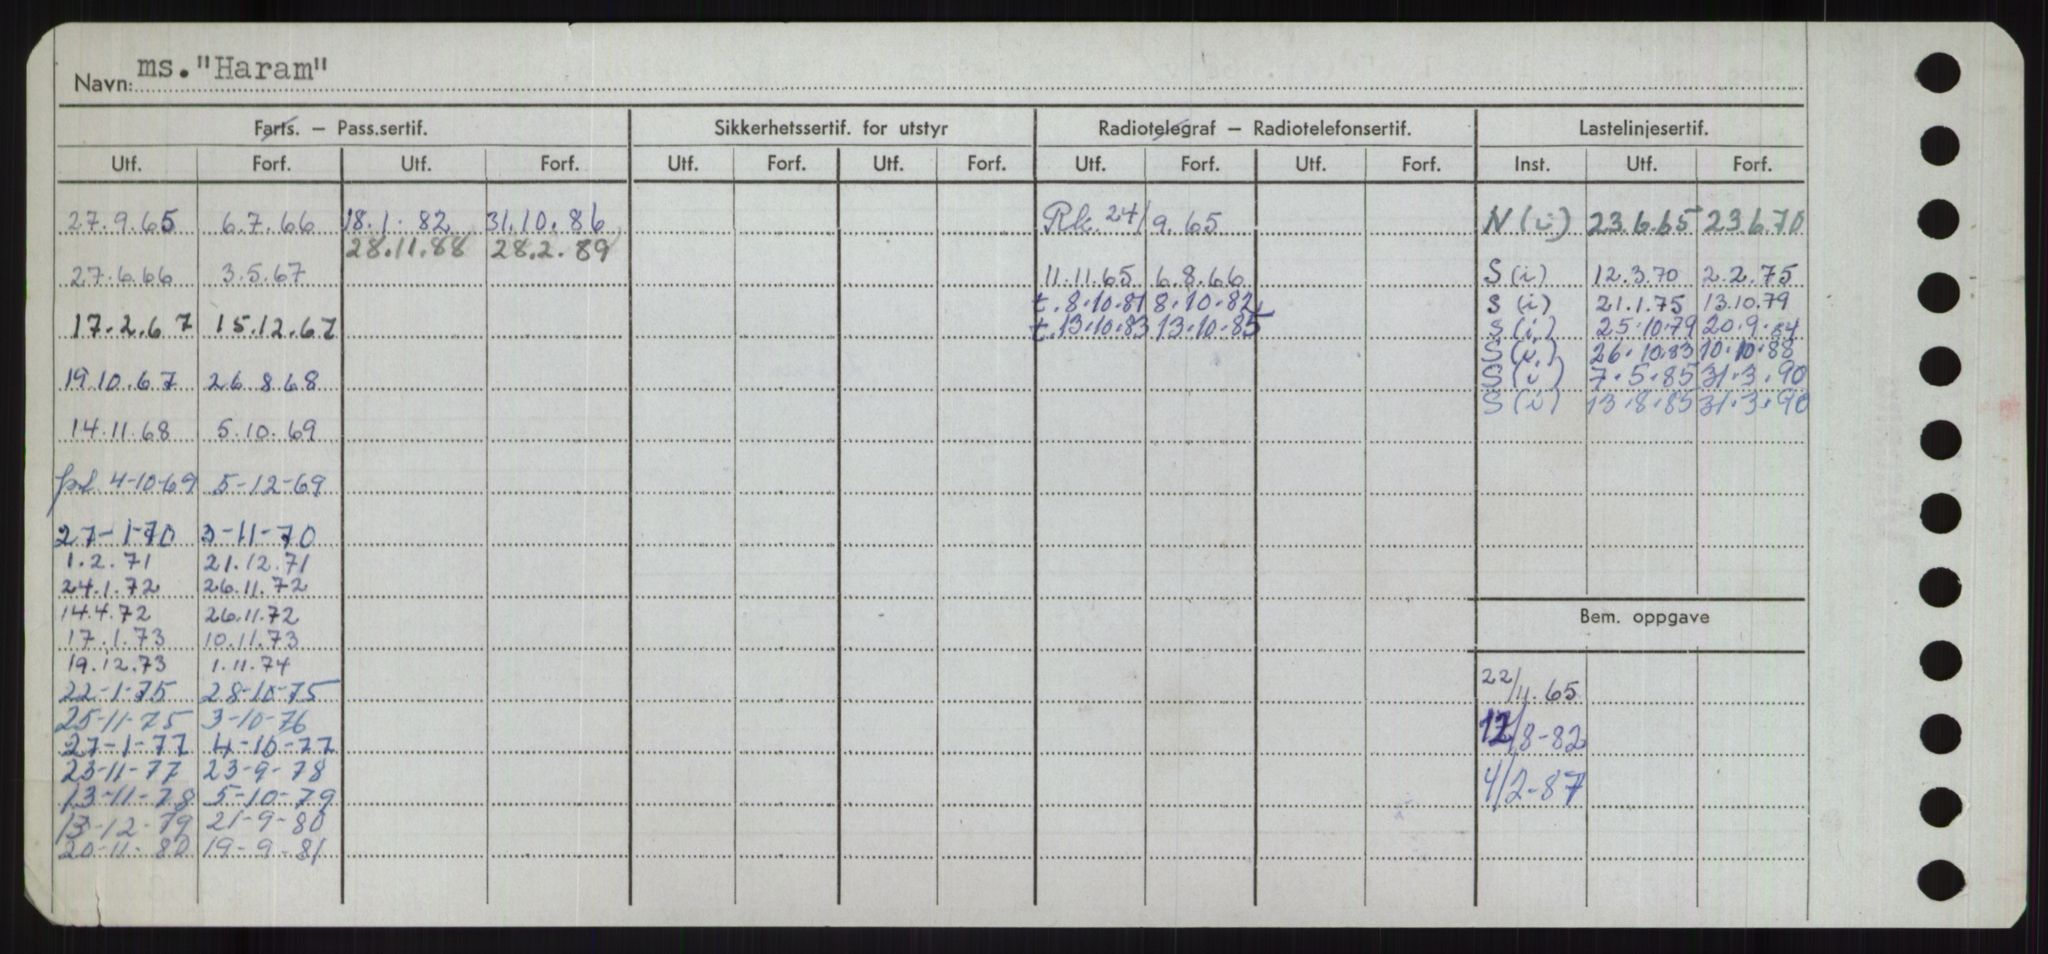 Navn: ms. "Haram"
Farts. – Pass.sertif. Sikkerhetssertif. for utstyr Radiotelegraf – Radiotelefonsertif. Lastelinjesertif.
Utf. Forf. Utf. Forf. Utf. Forf. Utf. Forf. Utf. Forf. Utf. Forf. Inst. Utf. Forf.
27.9.65 6.7.66 18.1.82 31.10.86 24/9.65 N (i) 23.6.65 23.6.70
28.11.88 28.2.89
27.6.66 3.5.67 11.11.65 6.8.66 S (i) 12.3.70 2.2.75
t. 8.10.81 8.10.82 S (i) 21.1.75 13.10.79
17.2.67 15.12.67 t. 13.10.83 13.10.85 S (i) 25.10.79 20.9.84
S (i) 26.10.83 10.10.88
19.10.67 26.8.68 S (i) 7.5.85 31.3.90
S (i) 13.8.85 31.3.90
14.11.68 5.10.69
4-10-69 5-12-69
27-1-70 3-11-70
1.2.71 21.12.71
24.1.72 26.11.72
14.4.72 26.11.72
Bem. oppgave
17.1.73 10.11.73
19.12.73 1.11.74
22-1-75 28-10-75 22/11.65
25-11-75 3-10-76
27-1-77 4-10-77 12/8-82
23-11-77 23-9-78
13-11-78 5-10-79 4/2-87
13-12-79 21-9-80
20-11-80 19-9-81